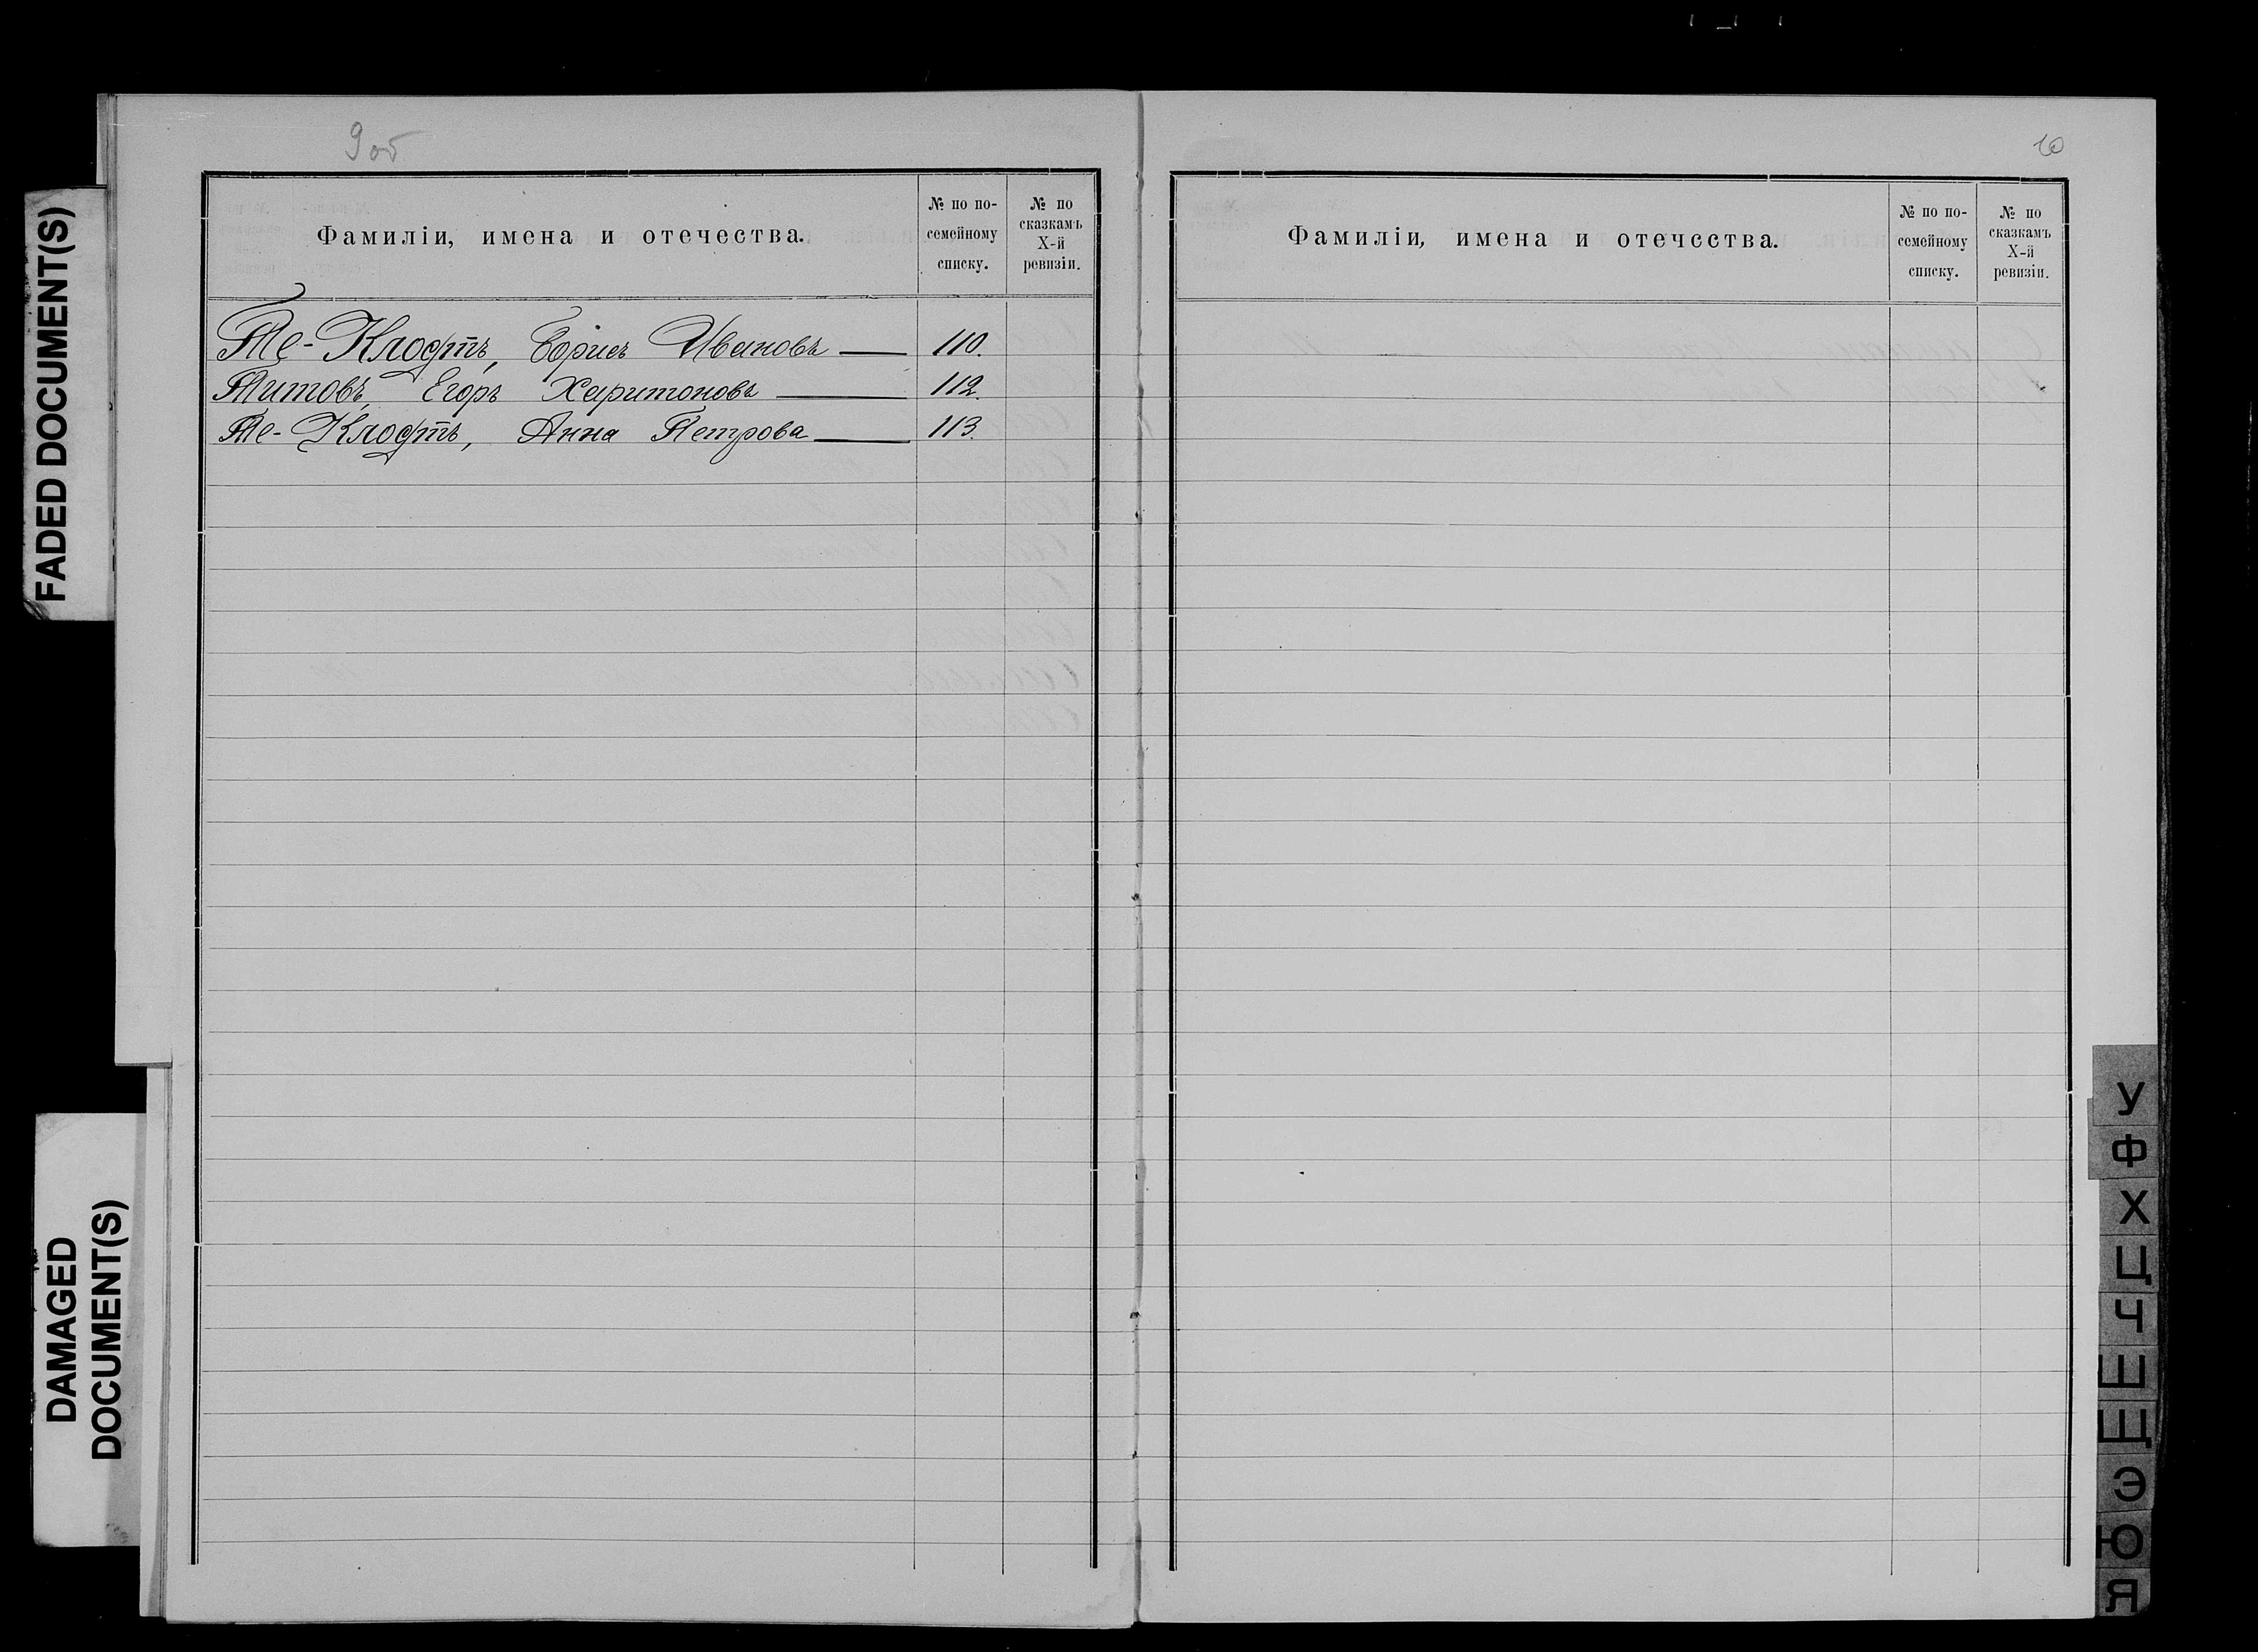 FADED DOCUMENT(S)
DAMAGED
DOCUMENT(S)
9 об
Фамиліи, имена и отечества.
№ по по-
семейному
списку.
№ по
сказкамъ
X-й
ревизіи.
Те-Клодтъ, Борисъ Ивановъ — 110.
Титовъ, Егоръ Харитоновъ — 112.
Те-Клодтъ, Анна Петрова — 113.
10
Фамиліи, имена и отечества.
№ по по-
семейному
списку.
№ по
сказкамъ
X-й
ревизіи.
У
Ф
Х
Ц
Ч
Ш
Щ
Э
Ю
Я